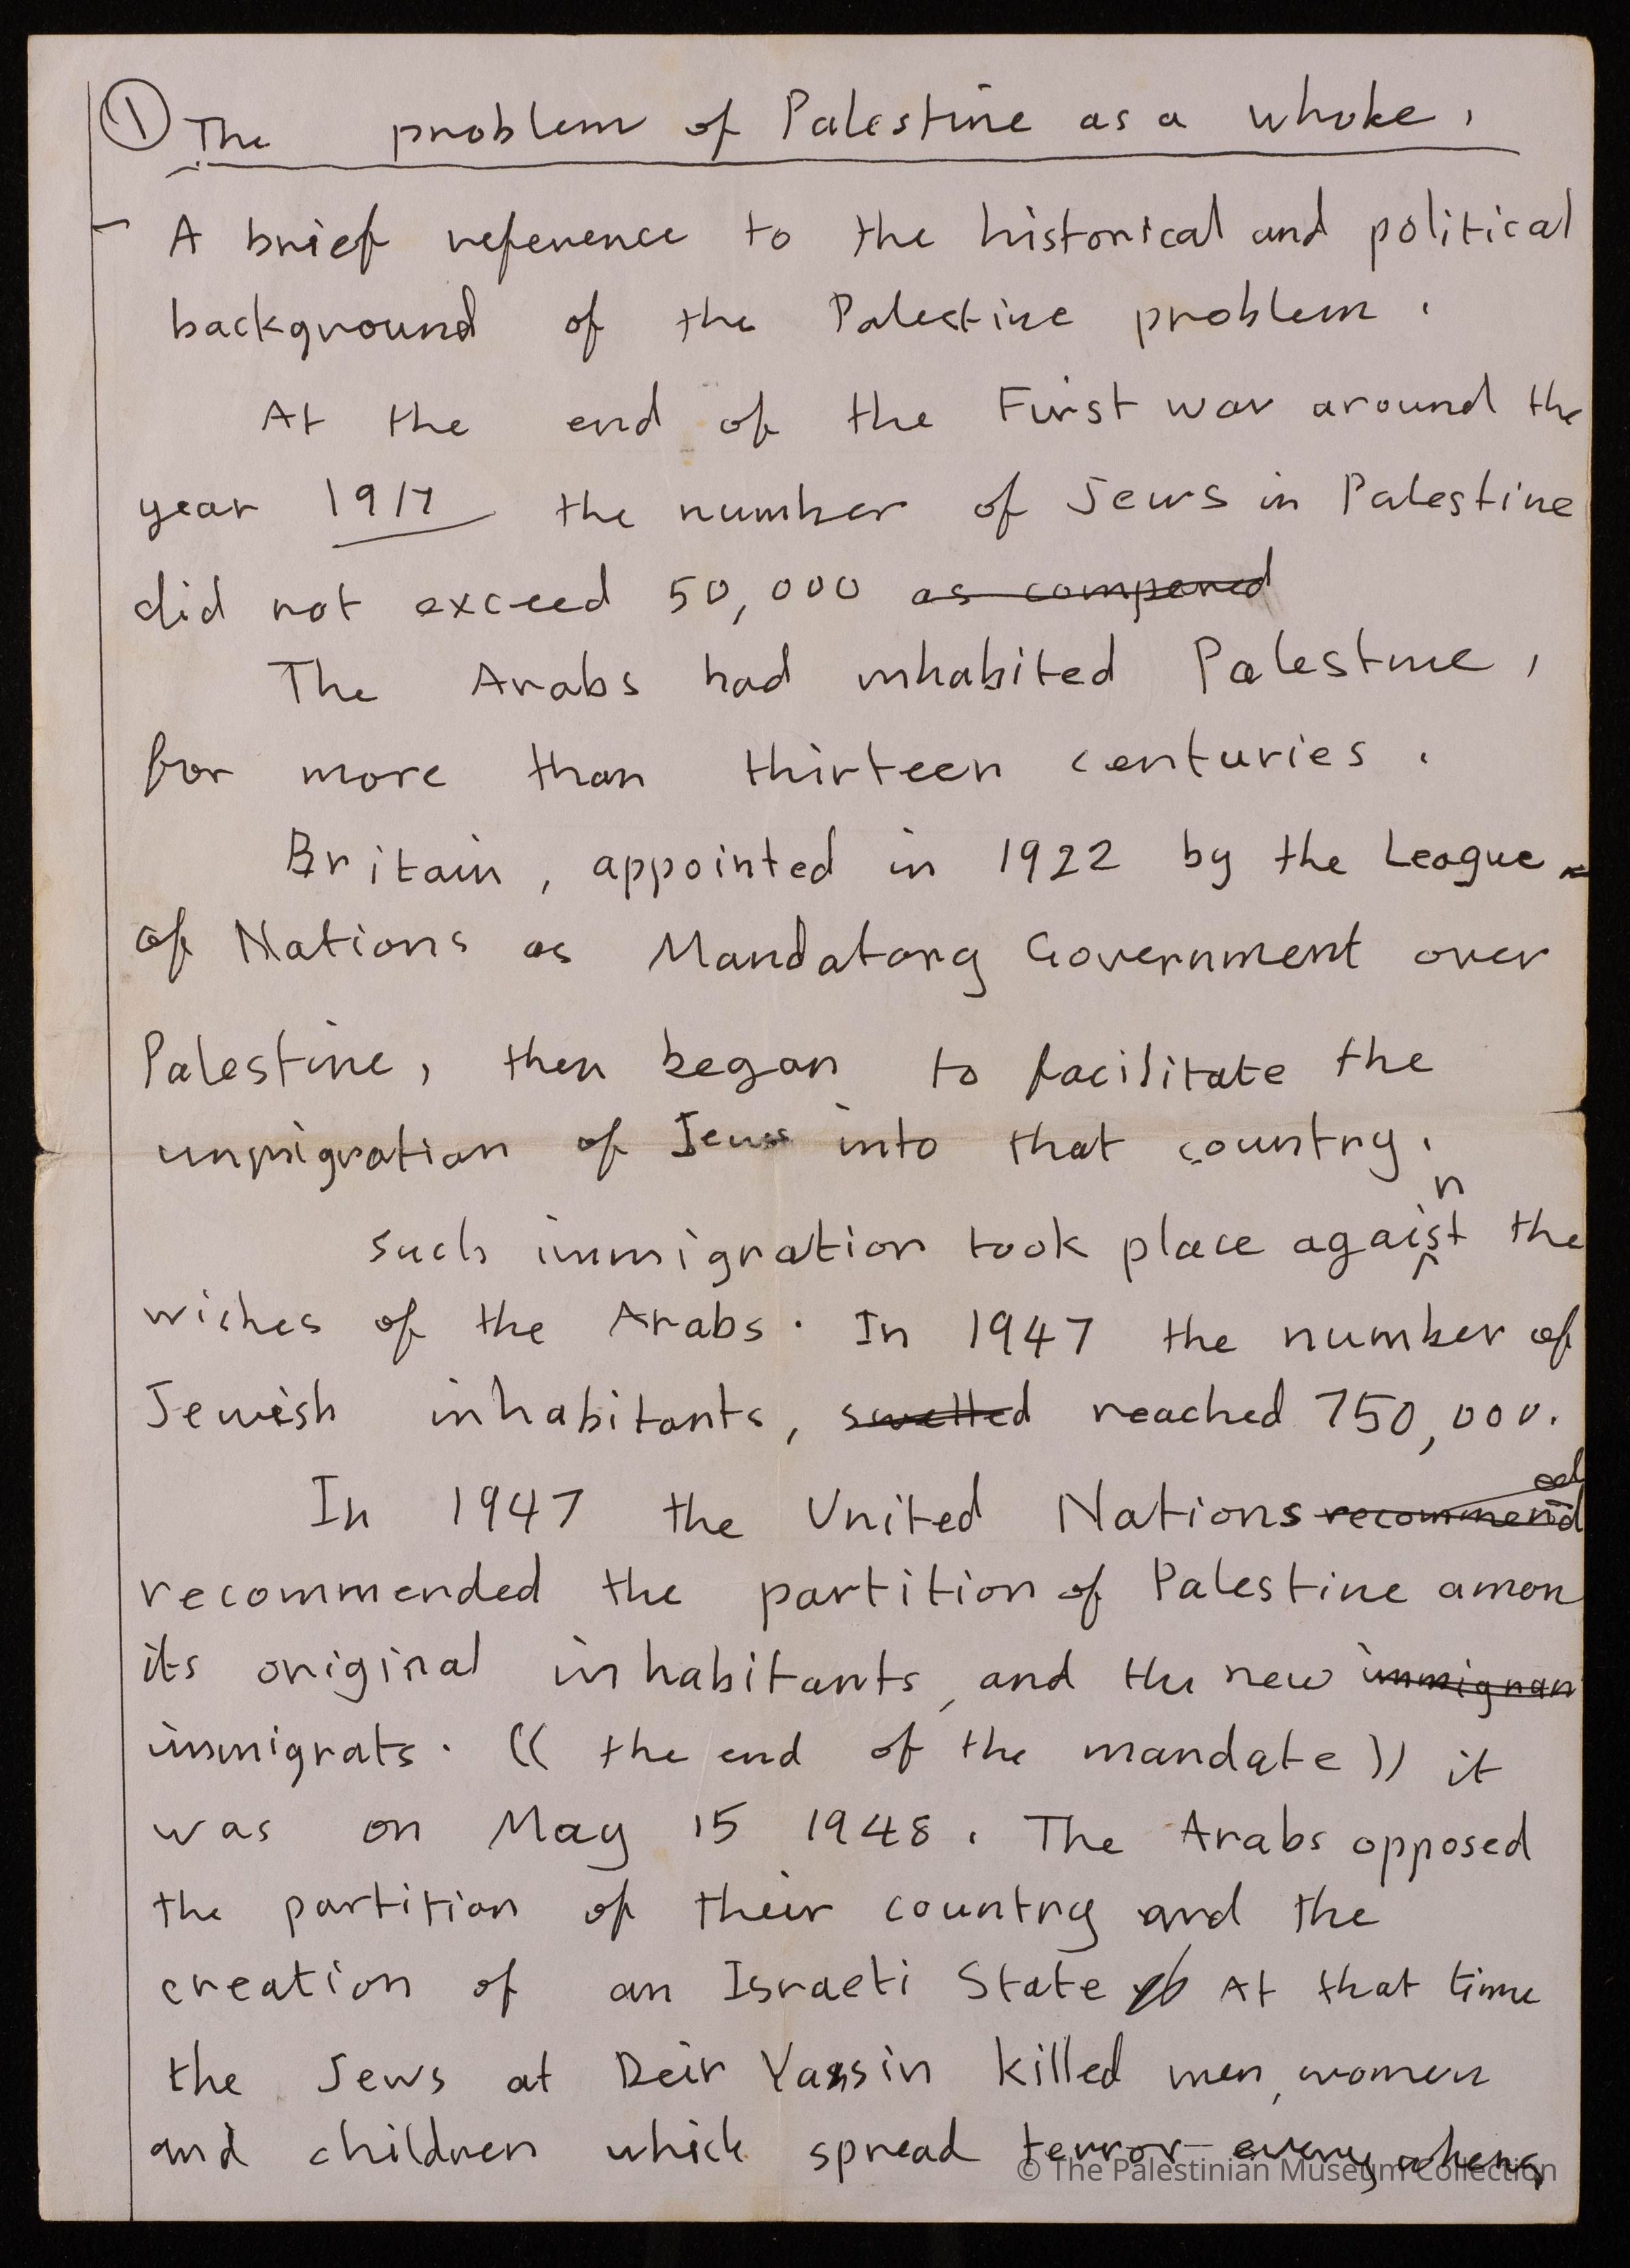 ① The problem of Palestine as a whole.
- A brief reference to the historical and political
background of the Palestine problem.
At the end of the First war around the
year 1917 the number of Jews in Palestine
did not exceed 50,000 as compared
The Arabs had inhabited Palestine,
for more than thirteen centuries.
Britain, appointed in 1922 by the League
of Nations as Mandatory Government over
Palestine, then began to facilitate the
immigration of Jews into that country.
such immigration took place against the
wishes of the Arabs. In 1947 the number of
Jewish inhabitants, swelled reached 750,000.
In 1947 the United Nations recommended
recommended the partition of Palestine amon
its original inhabitants, and the new immigran
immigrats. (( the end of the mandate )) it
was on May 15 1948. The Arabs opposed
the partition of their country and the
creation of an Israeli State At that time
the Jews at Deir Yassin killed men, women
and children which spread terror every where,
© The Palestinian Museum Collection